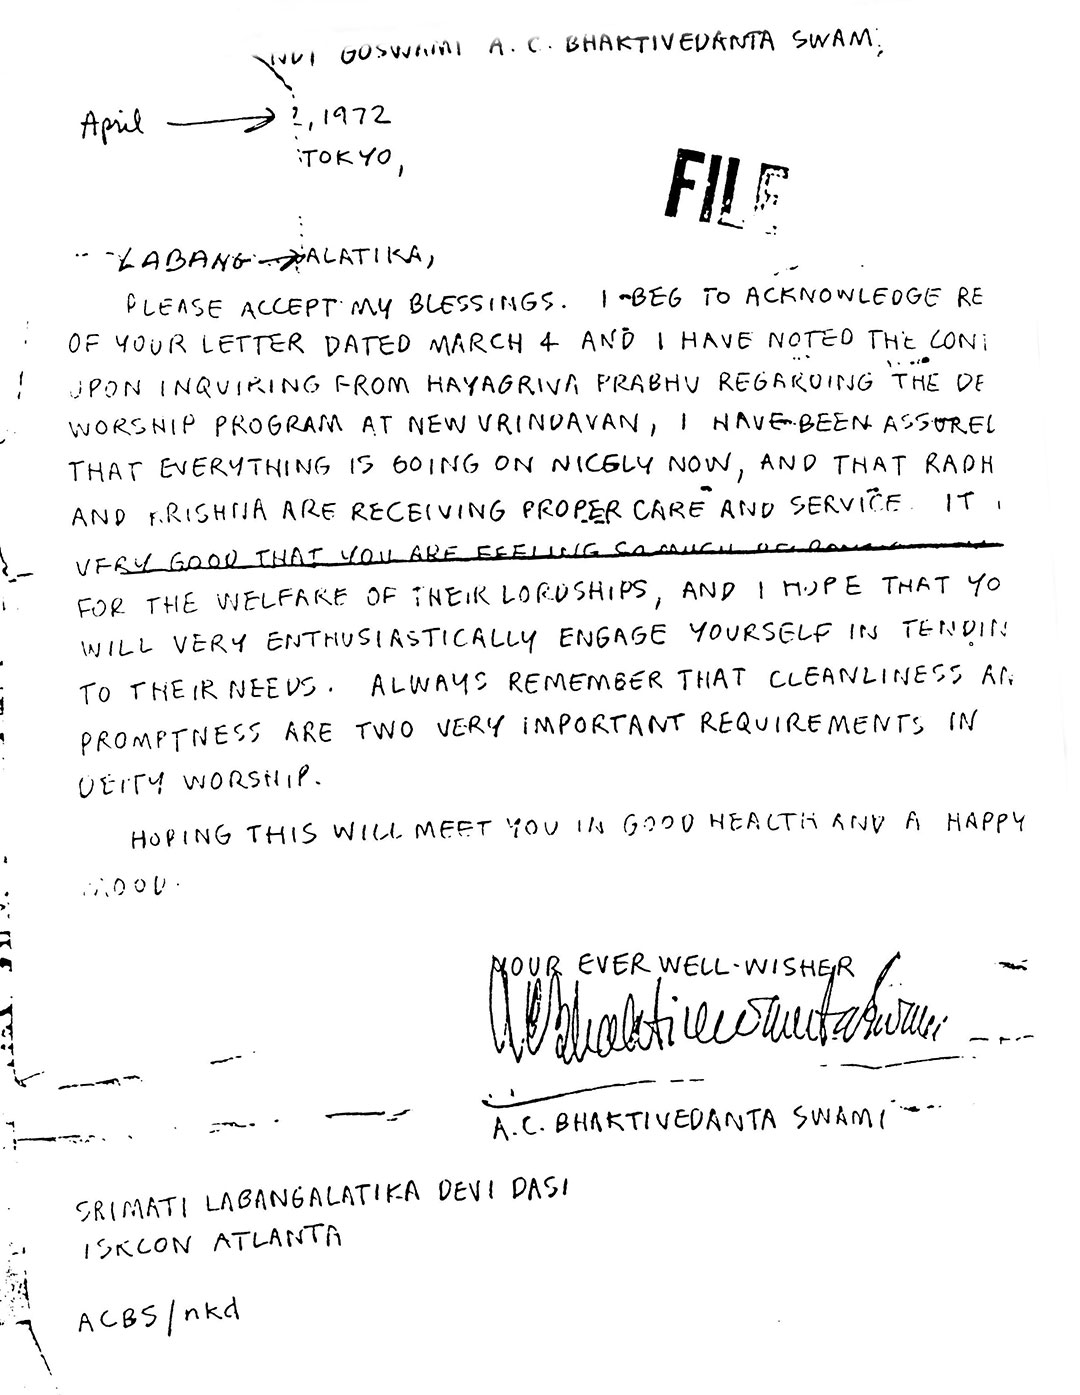 GOSWAMI A. C. BHAKTIVEDANTA SWAMI
April → 2, 1972
TOKYO,
FILE
LABANG→ALATIKA,
PLEASE ACCEPT MY BLESSINGS. I BEG TO ACKNOWLEDGE RE
OF YOUR LETTER DATED MARCH 4 AND I HAVE NOTED THE CON
UPON INQUIRING FROM HAYAGRIVA PRABHU REGARDING THE DE
WORSHIP PROGRAM AT NEW VRINDAVAN, I HAVE BEEN ASSURE
THAT EVERYTHING IS GOING ON NICELY NOW, AND THAT RADH
AND KRISHNA ARE RECEIVING PROPER CARE AND SERVICE. IT
VERY GOOD THAT YOU ARE FEELING SO MUCH
FOR THE WELFARE OF THEIR LORDSHIPS, AND I HOPE THAT YO
WILL VERY ENTHUSIASTICALLY ENGAGE YOURSELF IN TENDIN
TO THEIR NEEDS. ALWAYS REMEMBER THAT CLEANLINESS AN
PROMPTNESS ARE TWO VERY IMPORTANT REQUIREMENTS IN
DEITY WORSHIP.
HOPING THIS WILL MEET YOU IN GOOD HEALTH AND A HAPPY
MOOD.
YOUR EVER WELL-WISHER
A.C. Bhaktivedanta Swami
A.C. BHAKTIVEDANTA SWAMI
SRIMATI LABANGALATIKA DEVI DASI
ISKCON ATLANTA
ACBS/nkd